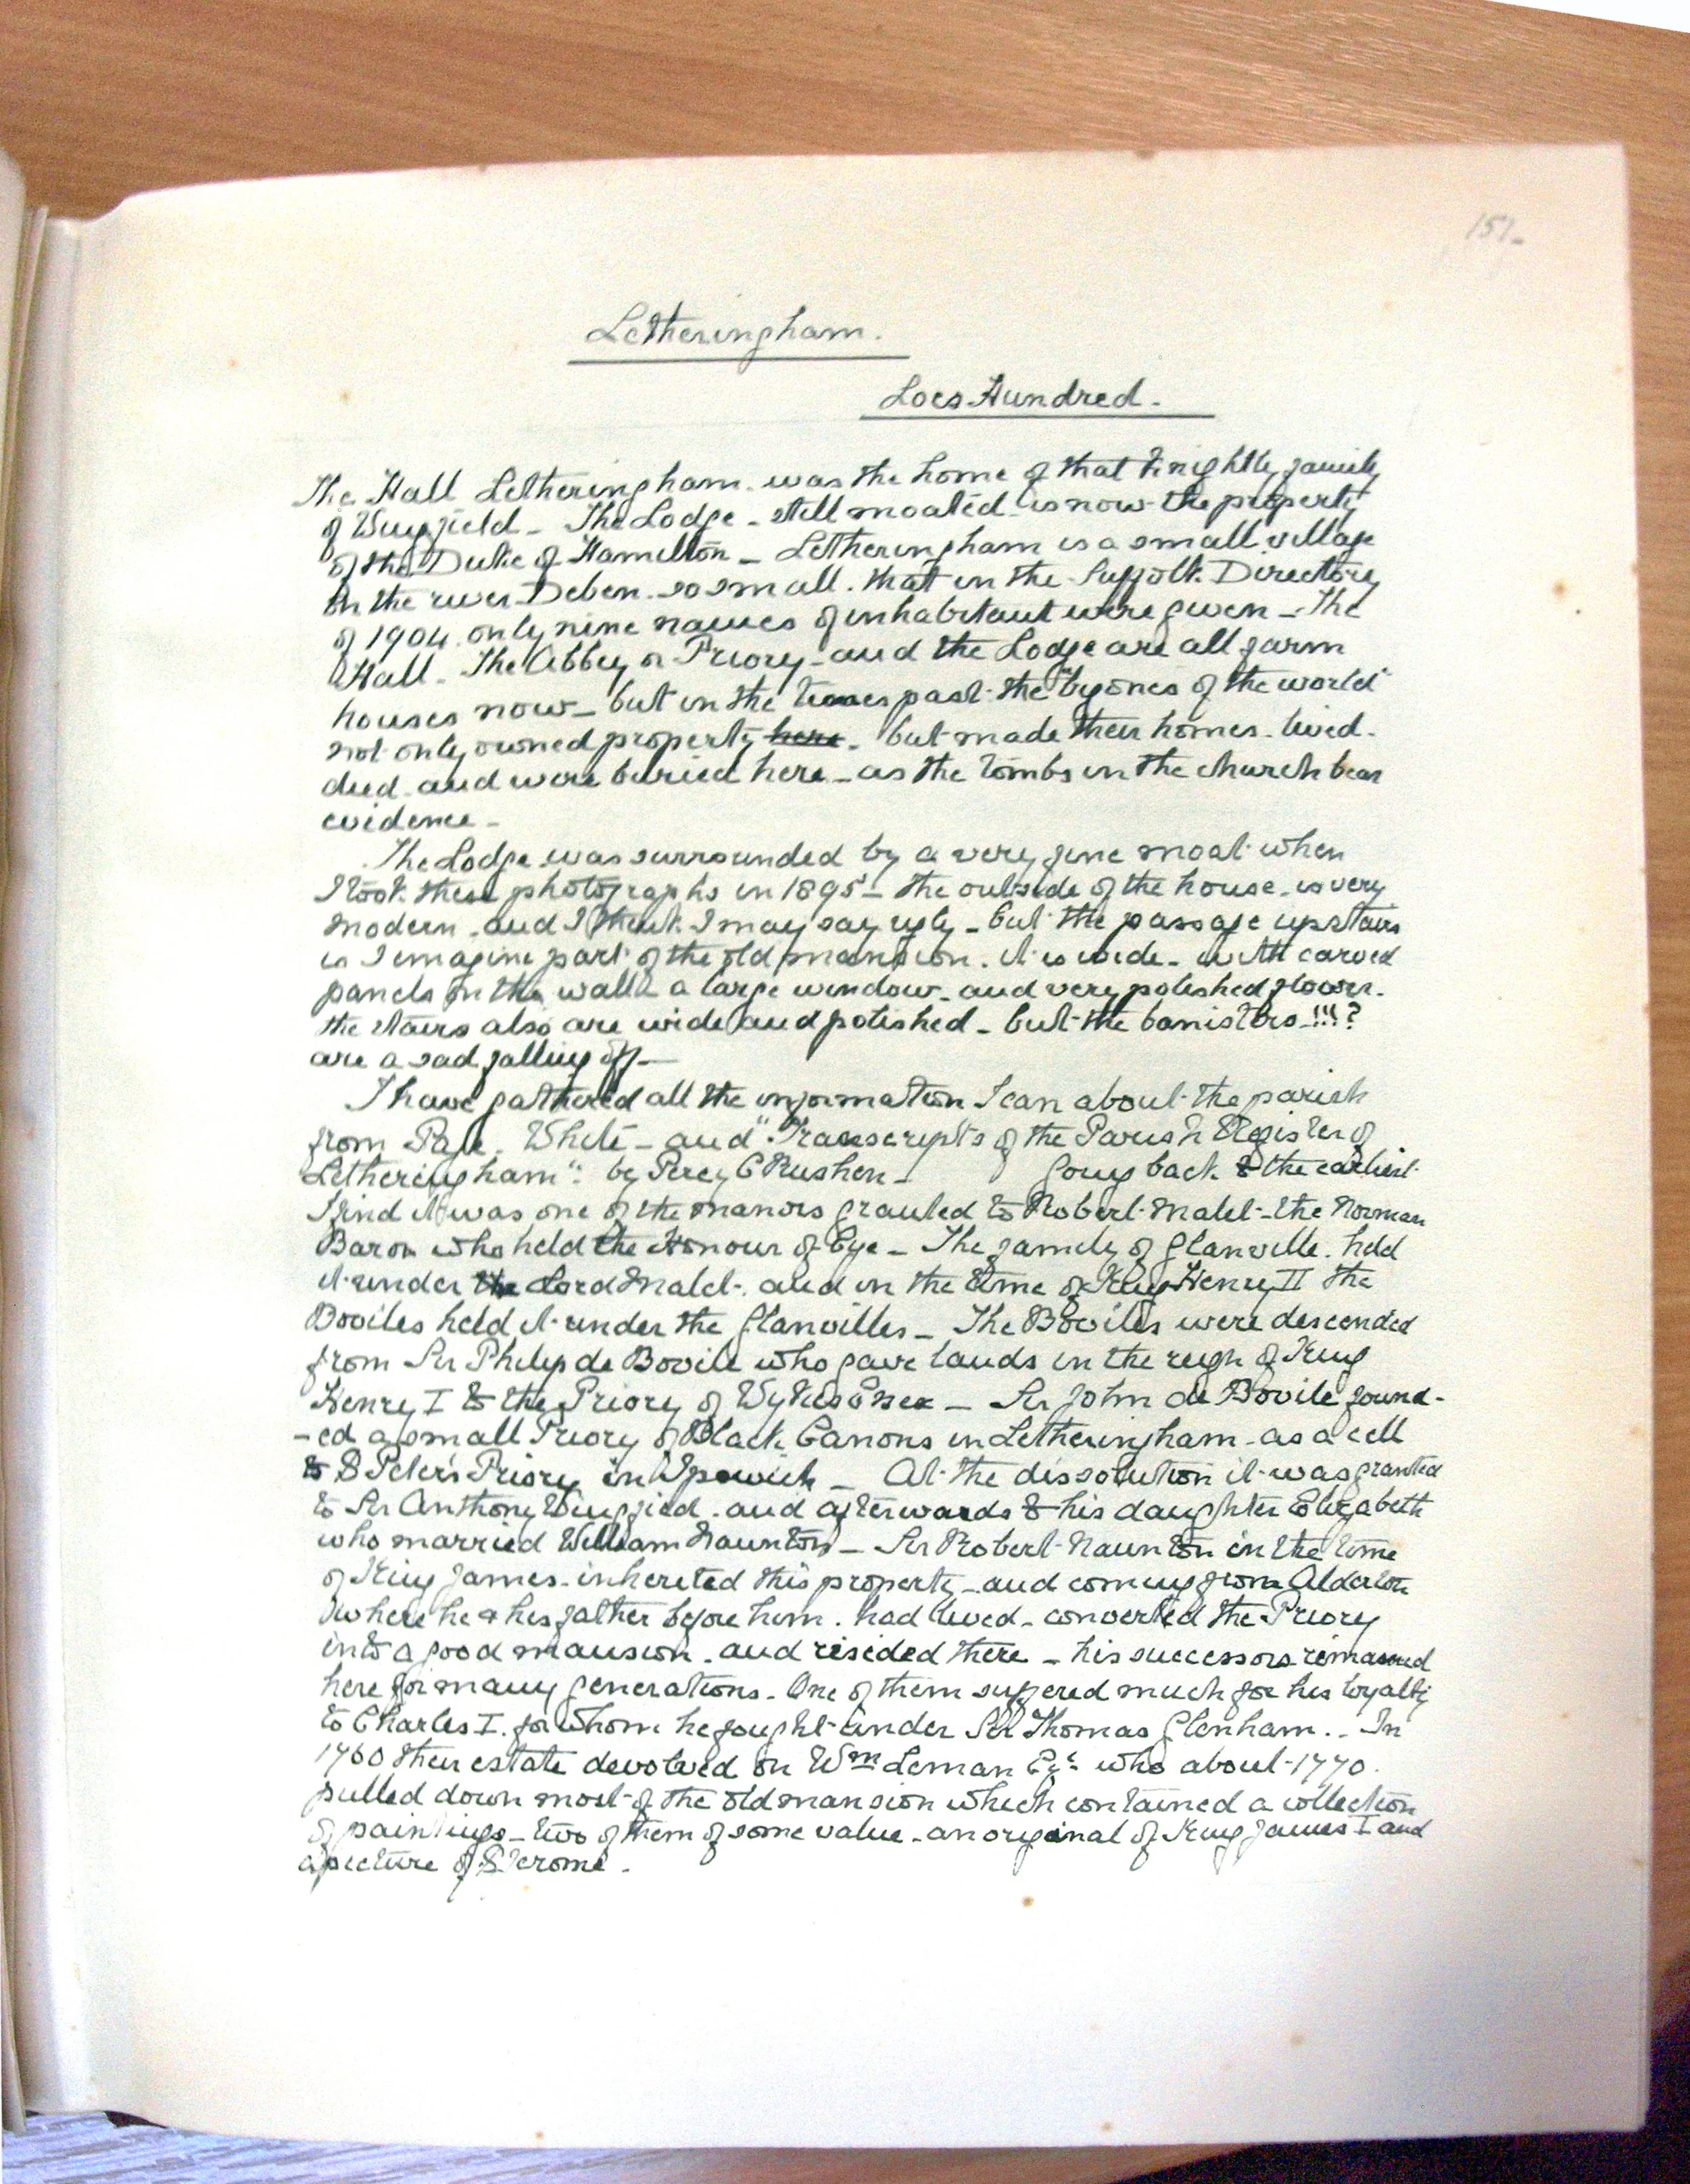 151-
Letheringham.
Loes Hundred.
The Hall Letheringham. was the home of that knightly family
of Wingfield - The Lodge - still moated - is now the property
of the Duke of Hamilton - Letheringham is a small village
on the river Deben. so small. that in the Suffolk Directory
of 1904. only nine names of inhabitant were given - The
Hall - The Abbey or Priory - and the Lodge are all farm
houses now - but in the times past the "bygones of the world"
not only owned property here - but made their homes. lived -
died - and were buried here - as the tombs in the church bear
evidence -
The Lodge was surrounded by a very fine moat when
I took these photographs in 1895 - the outside of the house - is very
modern - and I think I may say ugly - but the passage upstairs
is I imagine part of the old mansion. it is wide - with carved
panels on the walls a large window - and very polished floors.
the stairs also are wide and polished - but the banisters - !!!?
are a sad falling off -
I have gathered all the information I can about the parish
from Page. White - and "Transcripts of the Parish Register of
Letheringham": by Percy C Rushen - Going back to the earliest
I find it was one of the manors granted to Robert Malet - the Norman
Baron who held the Honour of Eye - The family of Glanville. held
it under the Lord Malet - and in the time of King Henry II the
Boviles held it under the Glanvilles - The Boviles were descended
from Sir Philip de Bovile who gave lands in the reign of King
Henry I to the Priory of Wykes Essex - Sir John de Bovile found-
-ed a small Priory of Black Canons in Letheringham - as a cell
to S Peter's Priory in Ipswich - At the dissolution it was granted
to Sir Anthony Wingfied. and afterwards to his daughter Elizabeth
who married William Naunton - Sir Robert Naunton in the time
of King James - inherited this property - and coming from Alderton
where he & his father before him. had lived - converted the Priory
into a good mansion - and resided there - his successors remained
here for many generations - One of them suffered much for his loyalty
to Charles I. for whom he fought under Sir Thomas Glenham. - In
1760 their estate devolved on Wm Leman Esq who about 1770.
pulled down most of the old mansion which contained a collection
of paintings - two of them of some value - an original of King James I and
a picture of S Jerome.